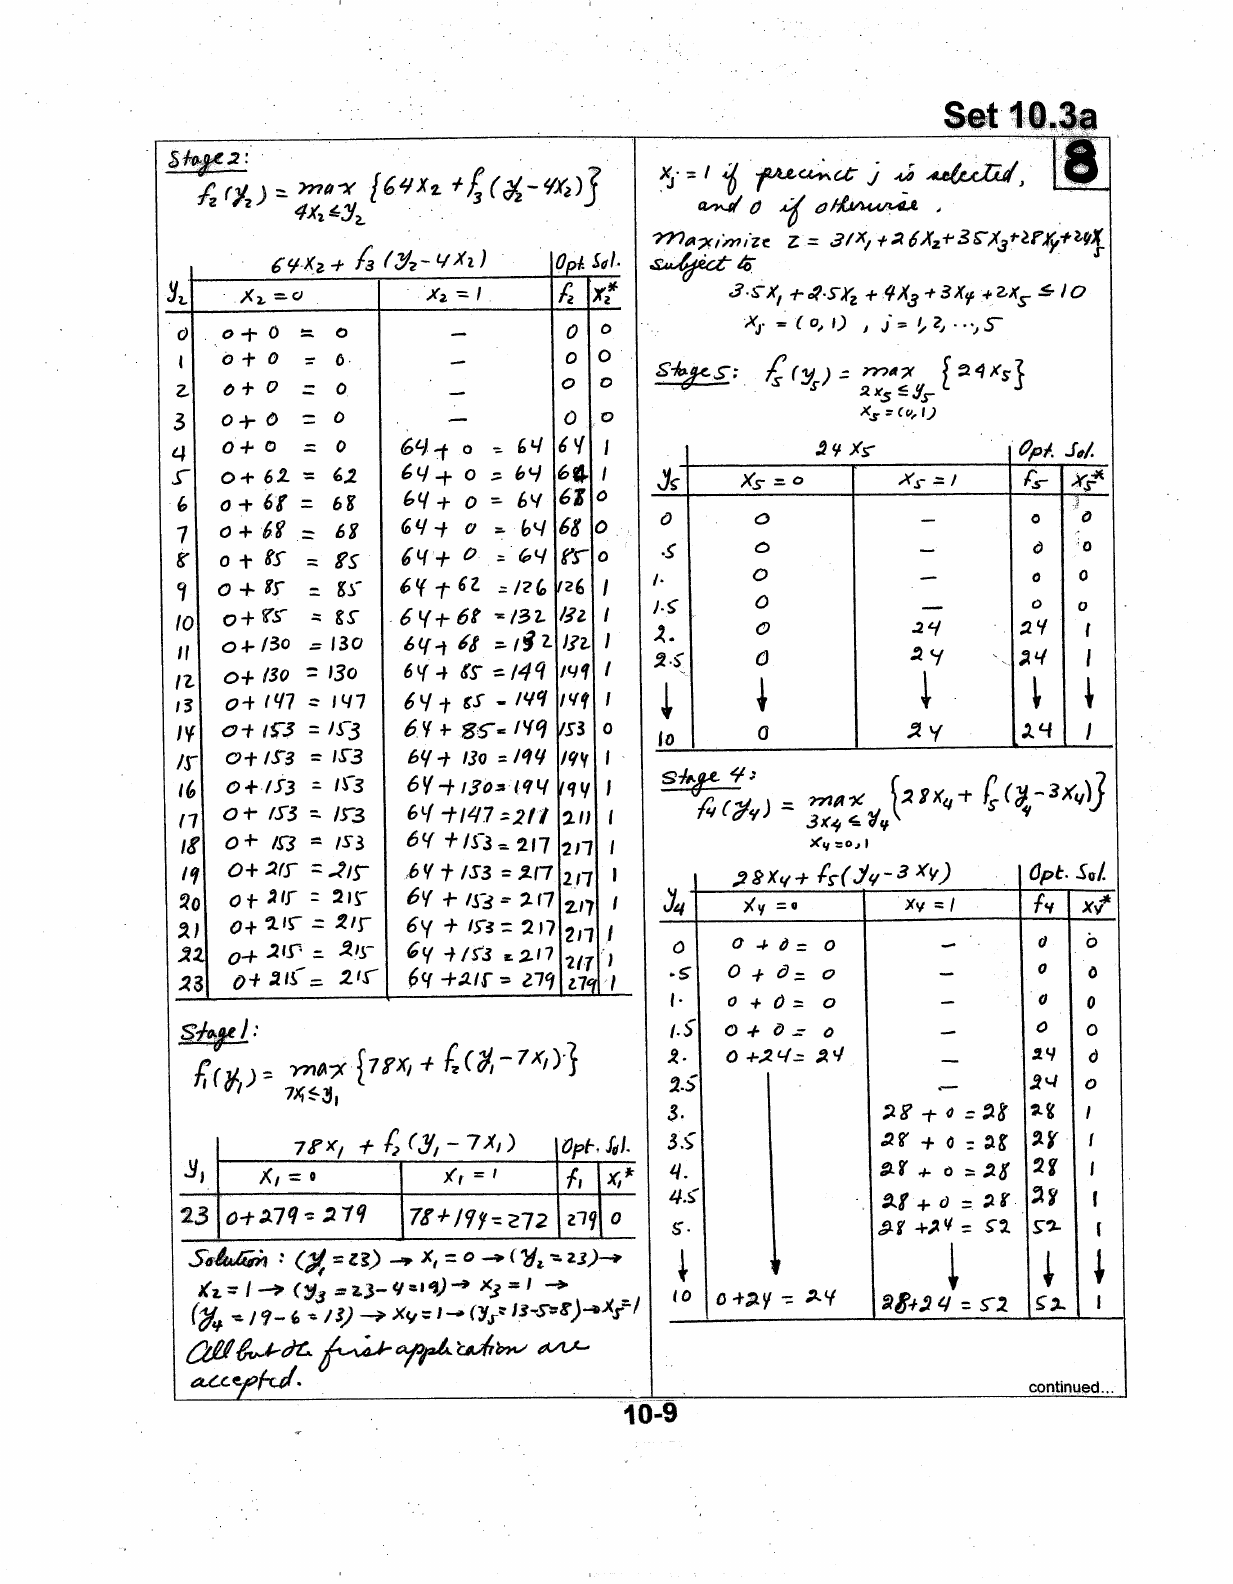 Set 10.3a
Stage 2:
f₂(y₂) = max {64x₂ + f₃(y₂-4x₂)}
4x₂≤y₂
64x₂ + f₃(y₂-4x₂) Opt. Sol.
y₂ x₂=0 x₂=1 f₂ x₂*
0 0+0 = 0 — 0 0
1 0+0 = 0 — 0 0
2 0+0 = 0 — 0 0
3 0+0 = 0 — 0 0
4 0+0 = 0 64+0 = 64 64 1
5 0+62 = 62 64+0 = 64 64 1
6 0+68 = 68 64+0 = 64 68 0
7 0+68 = 68 64+0 = 64 68 0
8 0+85 = 85 64+0 = 64 85 0
9 0+85 = 85 64+62 = 126 126 1
10 0+85 = 85 64+68 = 132 132 1
11 0+130 = 130 64+68 = 132 132 1
12 0+130 = 130 64+85 = 149 149 1
13 0+147 = 147 64+85 = 149 149 1
14 0+153 = 153 64+85 = 149 153 0
15 0+153 = 153 64+130 = 194 194 1
16 0+153 = 153 64+130 = 194 194 1
17 0+153 = 153 64+147 = 211 211 1
18 0+153 = 153 64+153 = 217 217 1
19 0+215 = 215 64+153 = 217 217 1
20 0+215 = 215 64+153 = 217 217 1
21 0+215 = 215 64+153 = 217 217 1
22 0+215 = 215 64+153 = 217 217 1
23 0+215 = 215 64+215 = 279 279 1
Stage 1:
f₁(y₁) = max {78x₁ + f₂(y₁-7x₁)}
7x₁≤y₁
78x₁ + f₂(y₁-7x₁) Opt. Sol.
y₁ x₁=0 x₁=1 f₁ x₁*
23 0+279=279 78+194=272 279 0
Solution: (y₁=23) → x₁=0 → (y₂=23) →
x₂=1 → (y₃=23-4=19) → x₃=1 →
(y₄=19-6=13) → x₄=1 → (y₅=13-5=8) → x₅=1
All but the first application are
accepted.
8
xⱼ = 1 if precinct j is selected,
and 0 if otherwise.
Maximize z = 31x₁+26x₂+35x₃+28x₄+24x₅
subject to
3.5x₁ + 2.5x₂ + 4x₃ + 3x₄ + 2x₅ ≤ 10
xⱼ = (0, 1) , j = 1, 2, ..., 5
Stage 5: f₅(y₅) = max {24x₅}
2x₅≤y₅
x₅=(0,1)
24x₅ Opt. Sol.
y₅ x₅=0 x₅=1 f₅ x₅*
0 0 — 0 0
.5 0 — 0 0
1. 0 — 0 0
1.5 0 — 0 0
2. 0 24 24 1
2.5 0 24 24 1
↓ ↓ ↓ ↓ ↓
10 0 24 24 1
Stage 4:
f₄(y₄) = max {28x₄ + f₅(y₄-3x₄)}
3x₄≤y₄
x₄=0,1
28x₄ + f₅(y₄-3x₄) Opt. Sol.
y₄ x₄=0 x₄=1 f₄ x₄*
0 0+0 = 0 — 0 0
.5 0+0 = 0 — 0 0
1. 0+0 = 0 — 0 0
1.5 0+0 = 0 — 0 0
2. 0+24 = 24 — 24 0
2.5 — 24 0
3. 28+0 = 28 28 1
3.5 28+0 = 28 28 1
4. 28+0 = 28 28 1
4.5 28+0 = 28 28 1
5. 28+24 = 52 52 1
↓ ↓ ↓ ↓ ↓
10 0+24 = 24 28+24 = 52 52 1
continued...
10-9